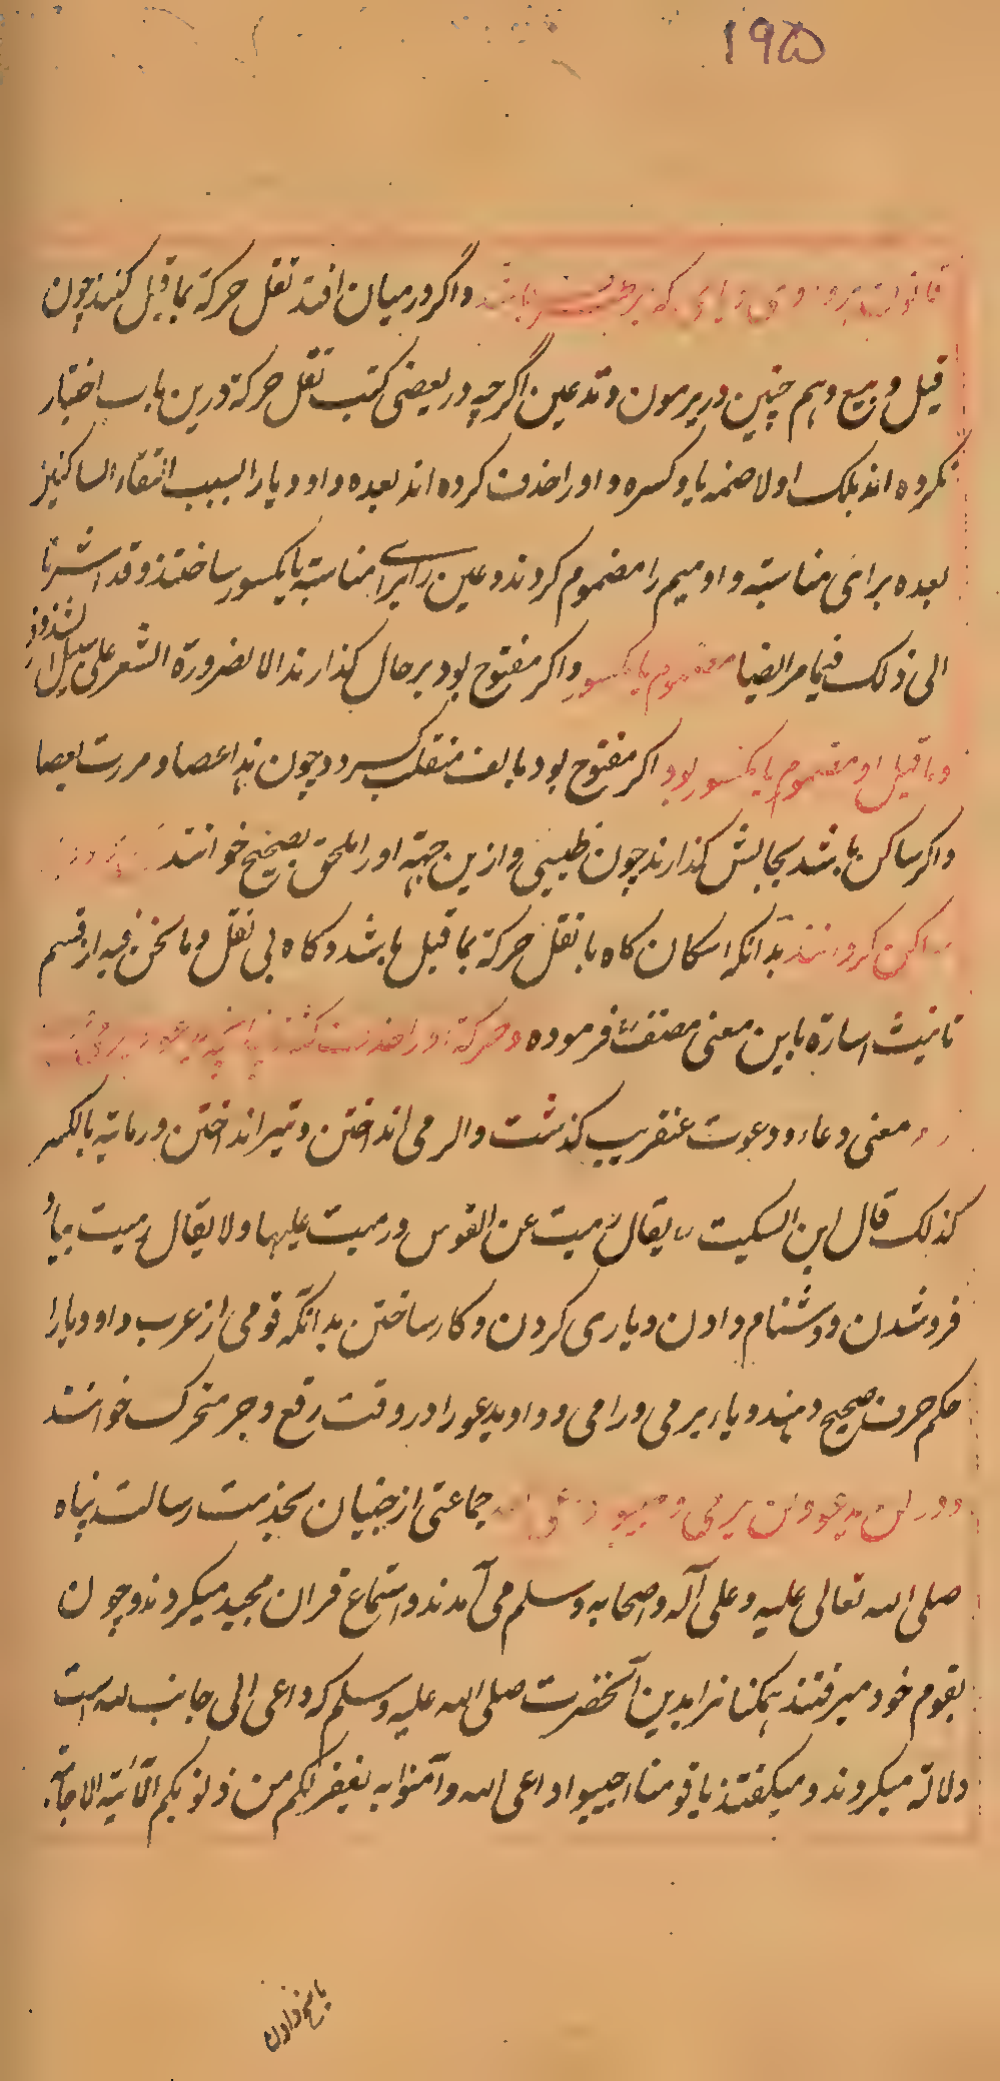 ۱۹۵
باشد واگر درمیان افتد نقل حرکة بماقبل کنند چون
قیل و بیع و هم چنین در یرمون و تدعین اگرچه در بعضی کتب نقل حرکة درین باب اختیار
نکرده اند بلک اولا ضمه یا و کسره واو را حذف کرده اند بعده واو و یا را بسبب التقاء الساکنین
بعده برای مناسبة واو میم را مضموم کردند و عین را برای مناسبة یا مکسور ساختند وقد اشرنا
الی ذلک فیما مر ایضا مضموم یا مکسور واکر مفتوح بود برحال کذارند الا لضرورة الشعر علی سبیل الشذوذ
وماقبل او مضموم یا مکسور بود اکر مفتوح بود بالف منقلب کردد چون هذا عصا و مررت بعصا
واکر ساکن باشد بحالش کذارند چون ظبیی وازین جهة او را ملحق بصحیح خوانند
ساکن کردانند بدانکه اسکان کاه با نقل حرکة بماقبل باشد و کاه بی نقل وما نحن فیه از قسم
ثانیست اسارة باین معنی مصنف فرموده و حرکة او را حذف کنند چنانچه یدعو و یرمی
معنی دعاء و دعوت عنقریب کذشت والرمی انداختن و تیر انداختن و رمایة بالکسر
کذلک قال ابن السکیت یقال رمیت عن القوس ورمیت علیها ولا یقال رمیت بها و
فروشدن و دشنام دادن و یاری کردن و کار ساختن بدانکه قومی از عرب واو و یا را
حکم حرف صحیح دهند و یاء یرمی و رامی و واو یدعو را در وقت رفع و جر متحرک خوانند
و در لن یدعو و لن یرمی جماعتی از جنیان بخدمت رسالت پناه
صلی الله تعالی علیه وعلی آله واصحابه وسلم می آمدند واستماع قران مجید میکردند و چون
بقوم خود میرفتند همکنانرا بدین آنحضرت صلی الله علیه وسلم که داعی الی جانب الله است
دلالة میکردند و میکفتند یا قومنا اجیبوا داعی الله وآمنوا به یغفر لکم من ذنوبکم الآیة الاجابة